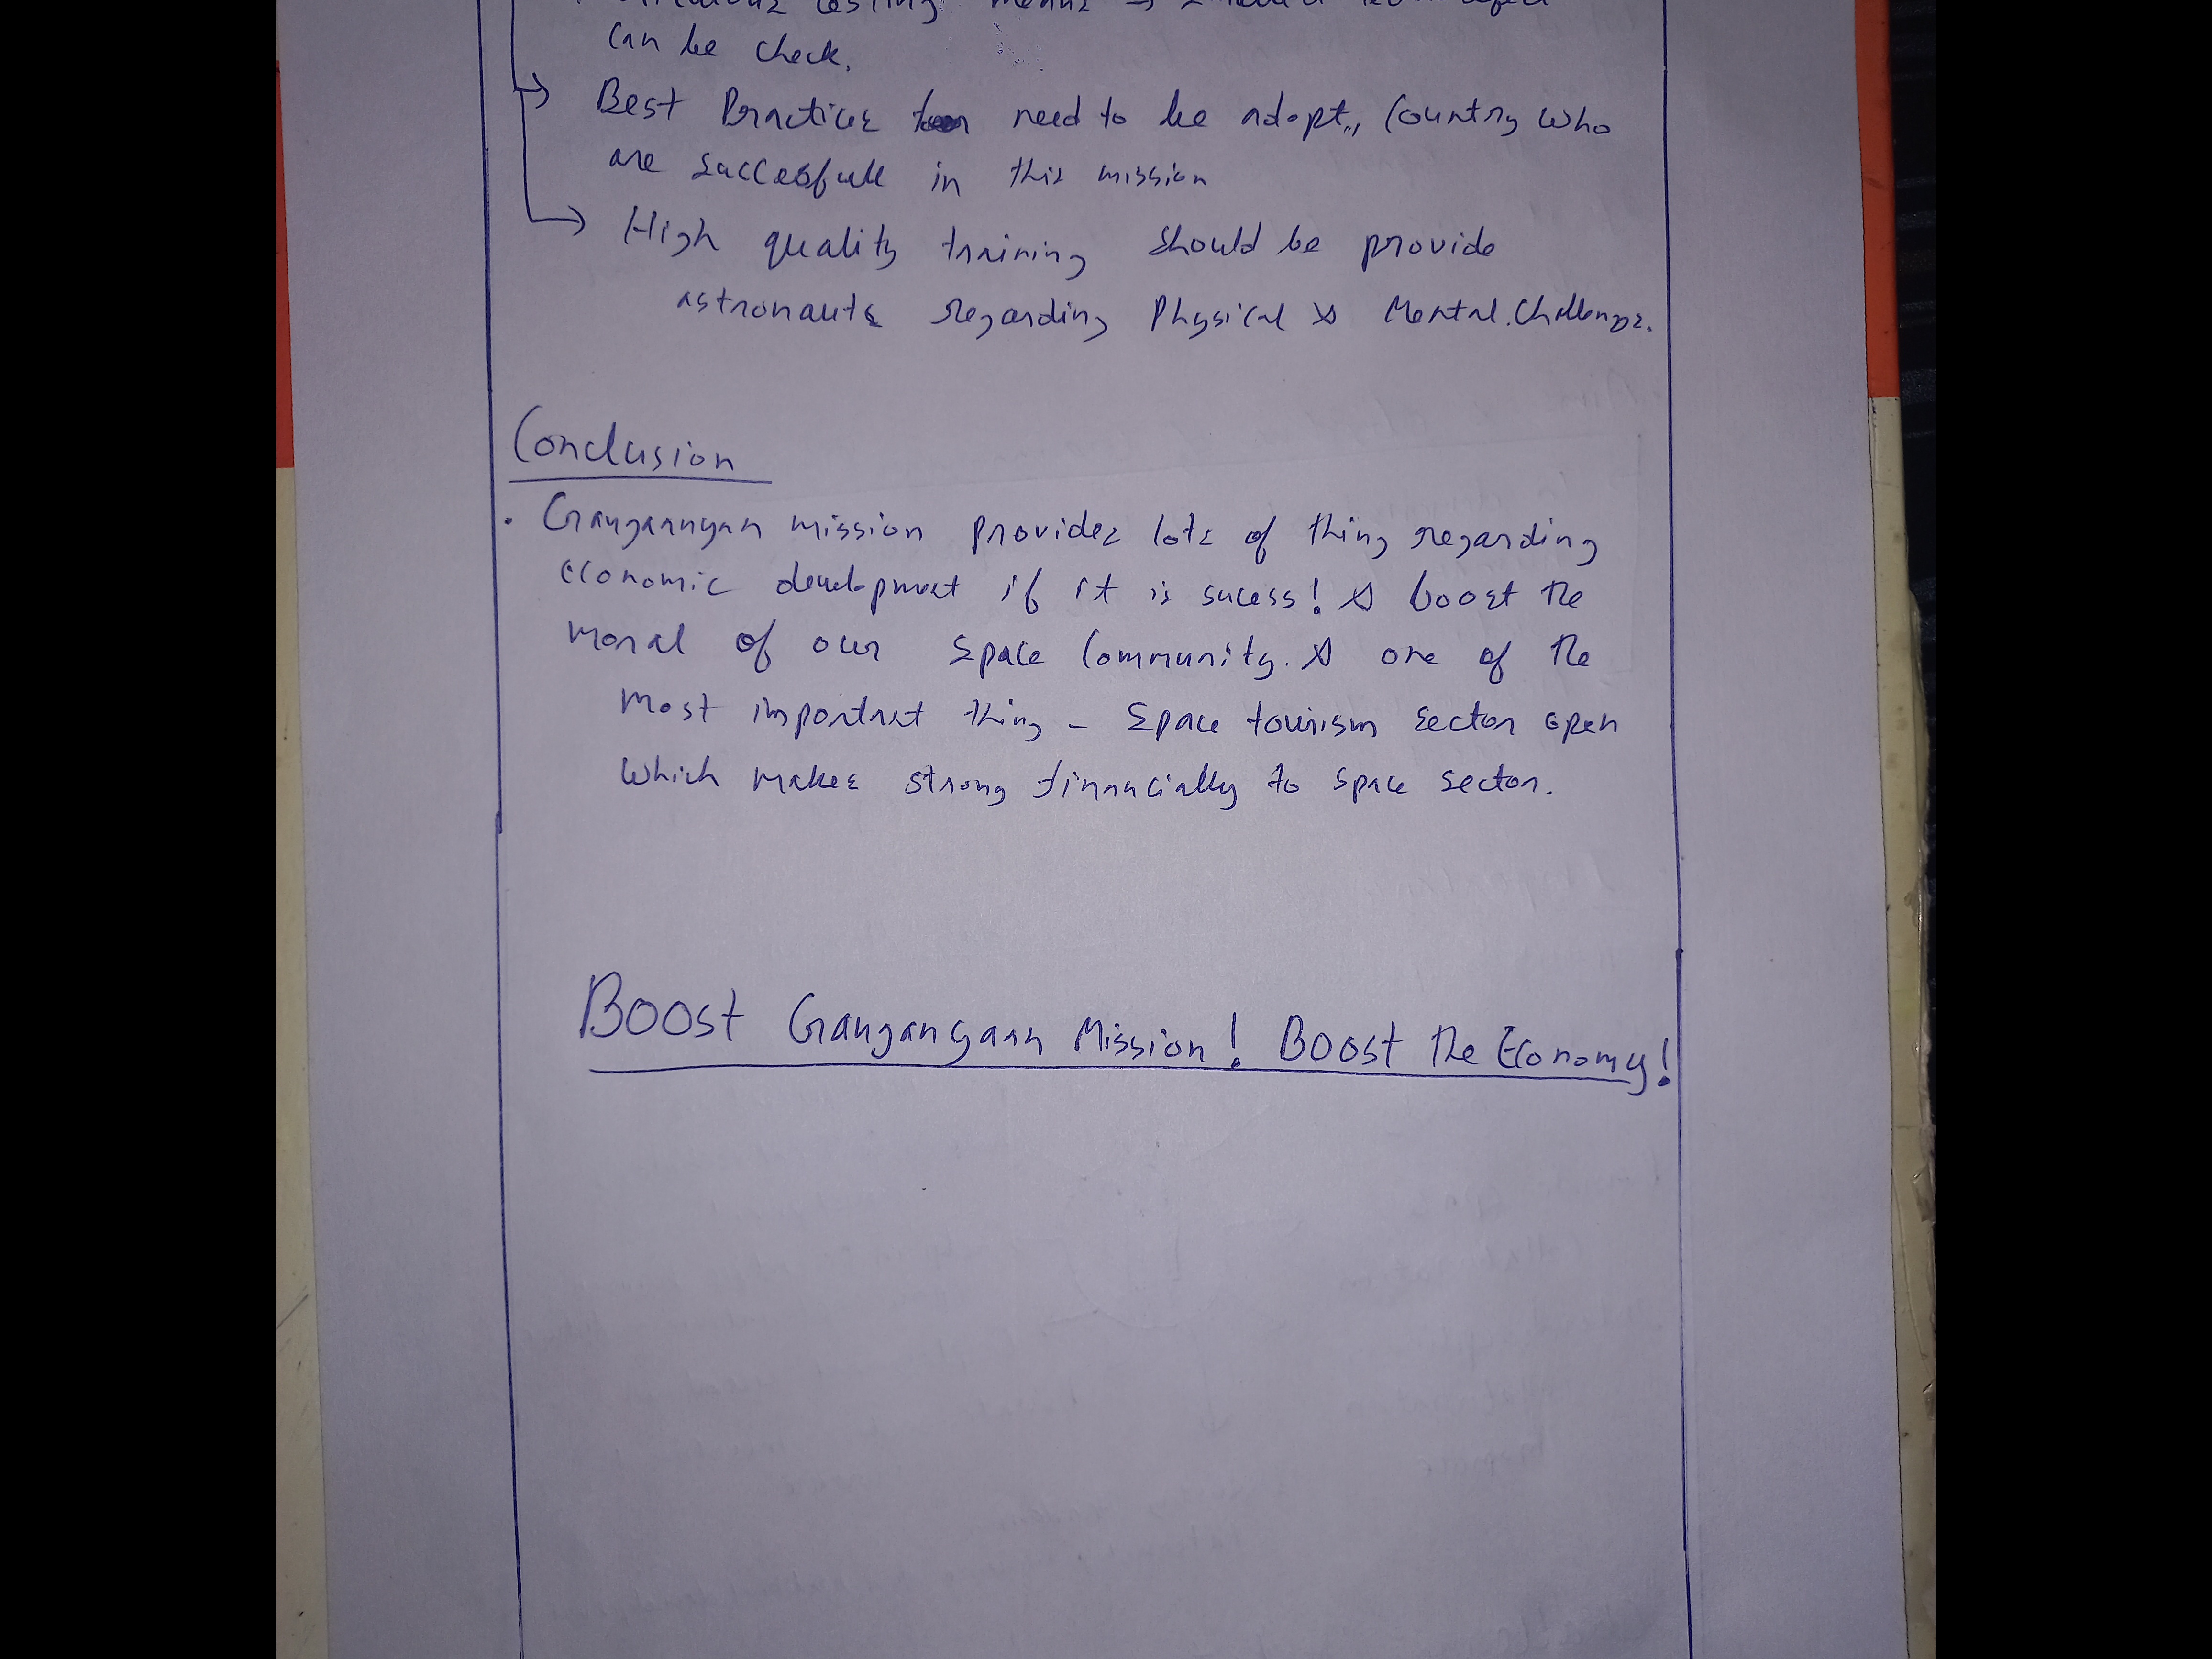 testing means →
can be check.
→ Best Practices need to be adopt,, Country who
are succesfull in this mission
→ High quality training should be provide
astronauts regarding Physical & Mental. Challenges.
Conclusion
• Gaugaanyan mission provides lots of thing regarding
economic development if it is sucess! & boost the
moral of our space Community. & one of the
most important thing - Space tourism sector open
which makes strong financially to space sector.
Boost Gaugangaan Mission! Boost the Economy!